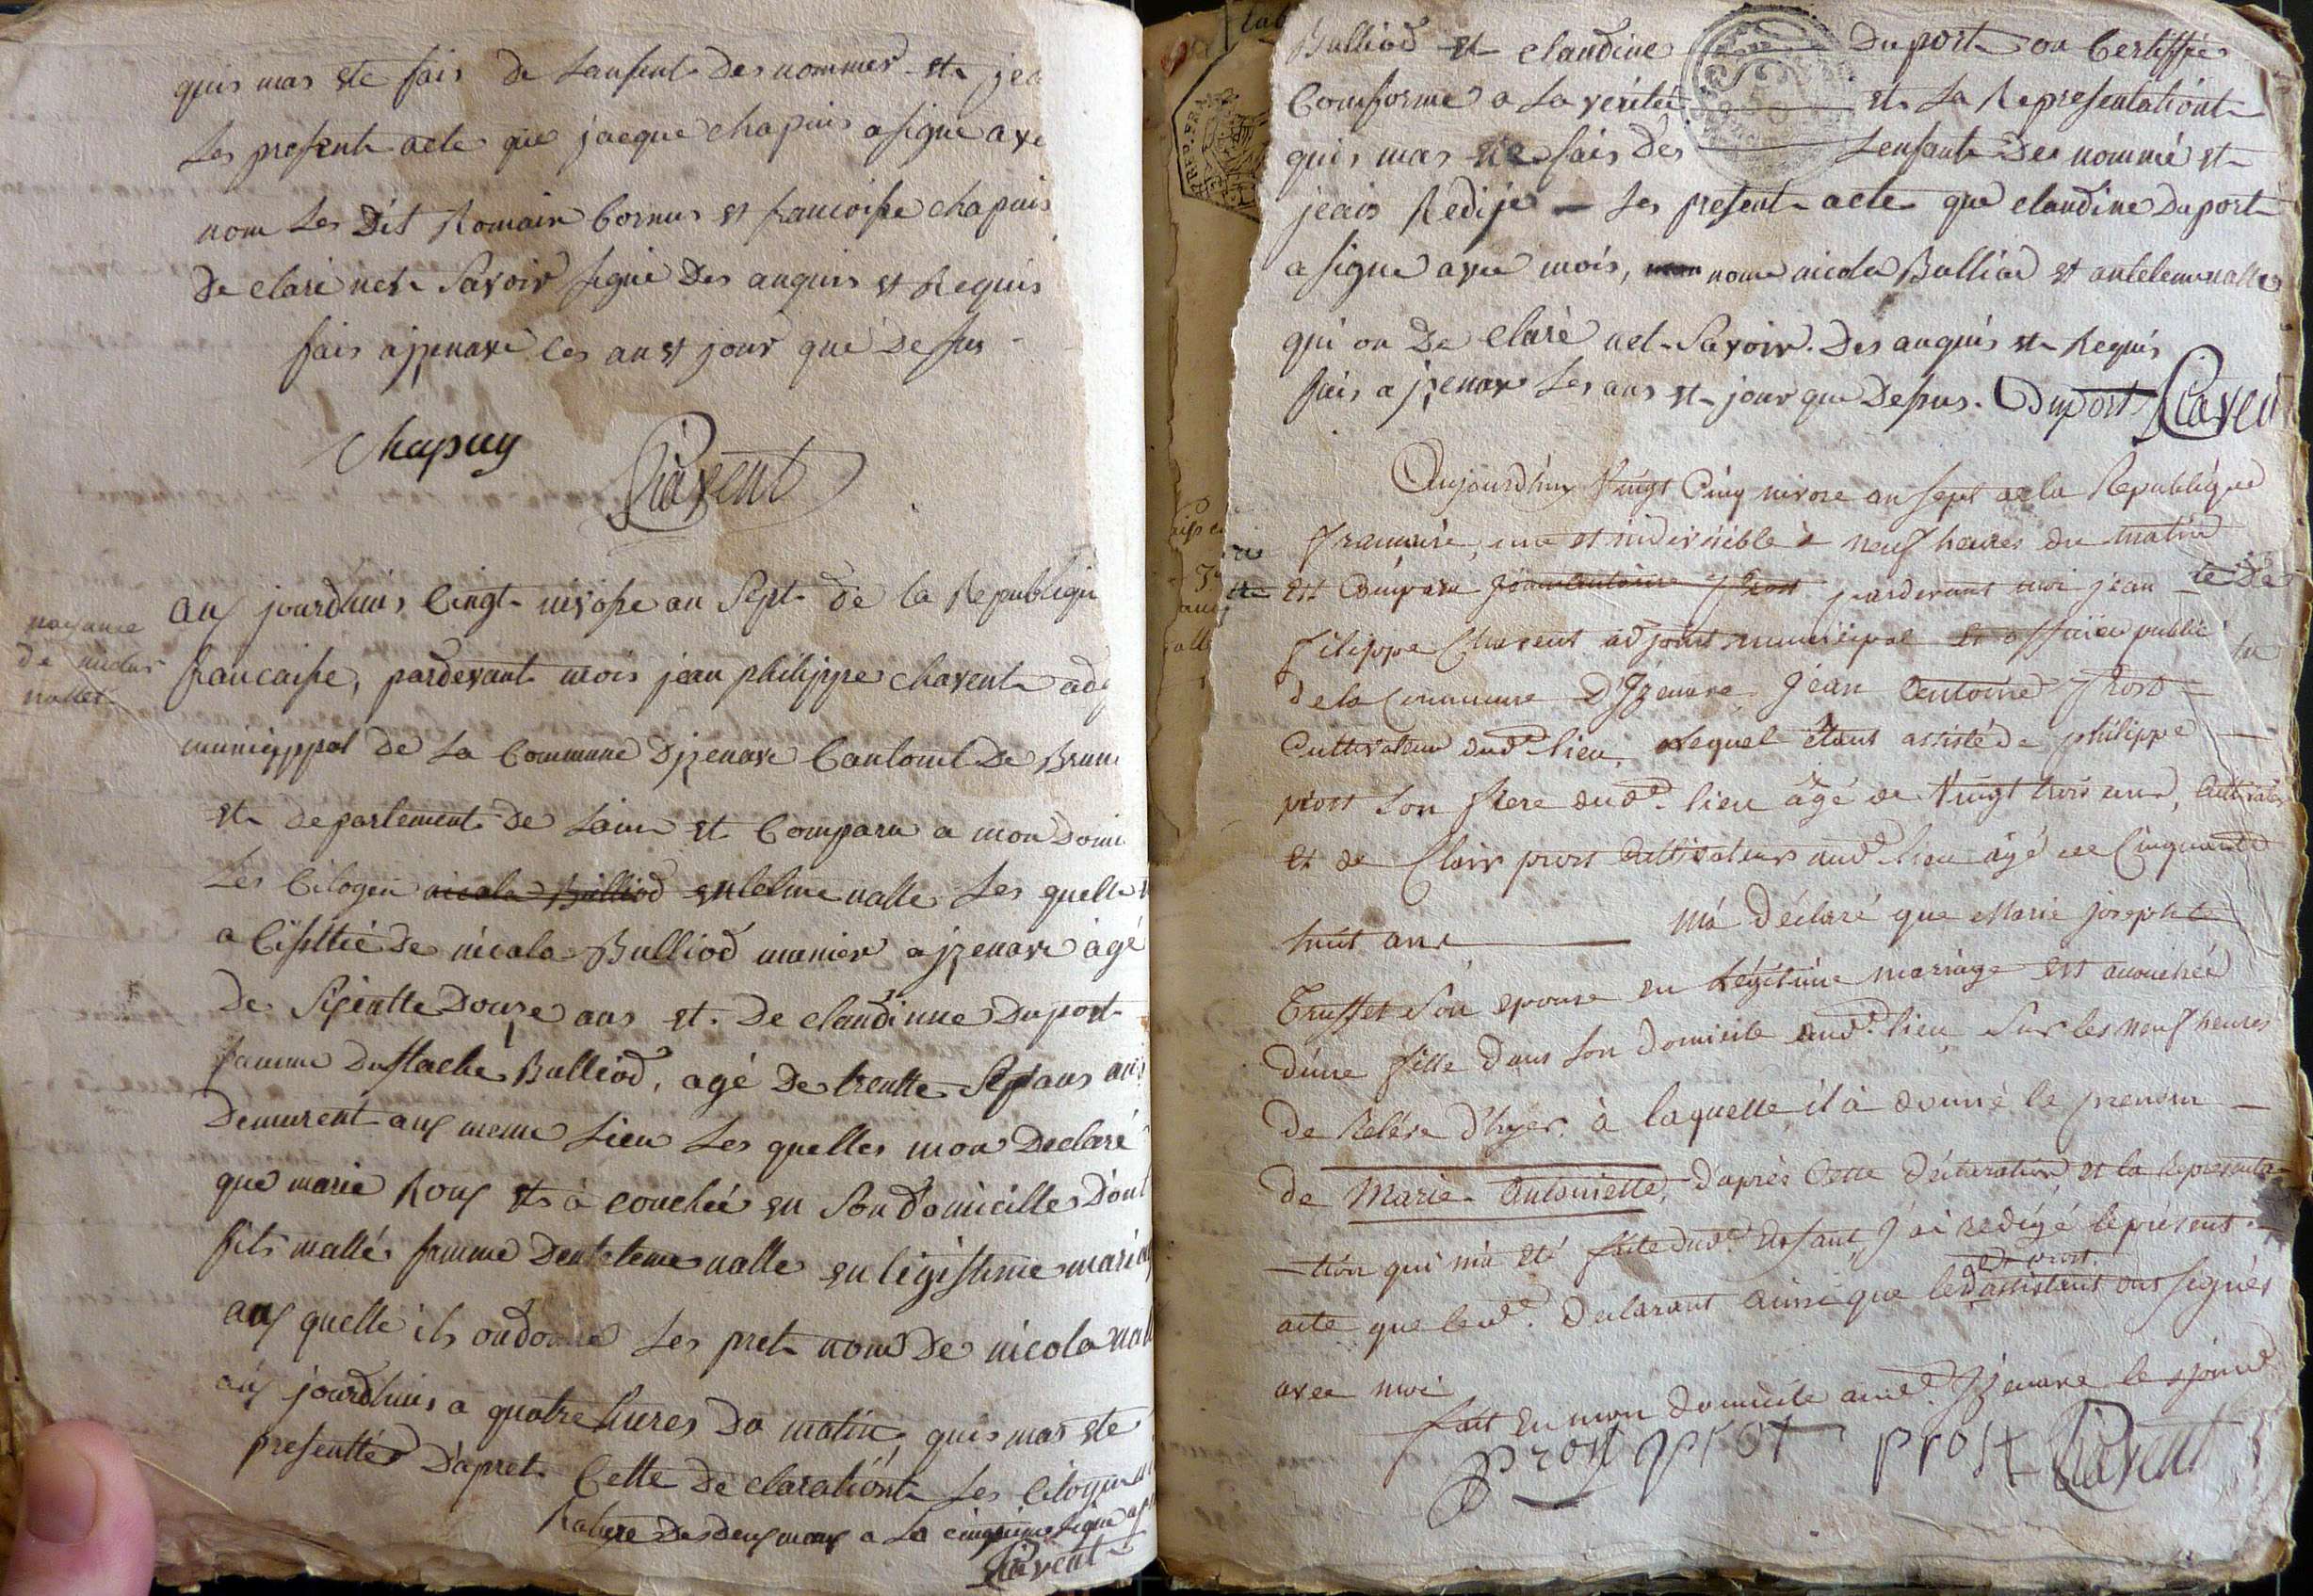 quis mas ete fais de Lanfent des nommer et jea
Les present acte que jacque chapuis a signe ave
nom Les Dit Romain Cornus et francoise chapuis
De clare net Savoir signe Des anquis et Requis
fais a jzenave les an et jour que Desus
Chapuy
Chavent
naysance
De nicolas
nallet
auy jourdhuis Cingt nivose an Sept de la Republique
francaise, pardevant mois jean philippe chavent adj
municippal de La Commune Djzenave Cantont De Bruni
et departement de Lain et Comparu a mon Domi
Les Citogen nicola Bulliod entelme nalle Les quelle
a Cisttié de nicola Bulliod munier a jzenave agé
De Sisentte Douze ans et De claudinne Duport
famme Dustache Bulliod, agé De trentte Sept ans aussi
Demurent auy meme Lieu Les quelles mon Declaré
que marie Rouy ets à couchée en Son Domicilles Dont
fits mallés famme Dentelme nalle en légistime mariag
auy quelle ils on donné Les pret nom De nicola nall
auy jourdhuis a quatre hures Da matin, quis mas ete
presenttée D'apret Cette De claratiónt Les Citoyen
Rature Des deuy mauy a La cinquime Ligne
Chavent
Bulliod et claudine Duport on Certiffiés
Comforme a La verité et La Representatiónt
quis mas ete fais Des Lenfant Des nommé et
jeais Redije Les present acte que claudine Duport
a signe avec mois, nom nicola Bulliod et entelme nalle
qui on De claré net Savoir Des anquis et Requis
fais a jzenave Les ans et jour que Desus. Duport Chavent
Aujourdhuy Vingt Cinq nivose an Sept de la Republique
francaise, une et indivisible à neuf heures du matin
est Comparu Jean Antoine Prost pardevant moi jean
Filippe Chavent adjoint municipal et officier public
de la Commune D'Izenave, Jean Antoine Prost
Cultivateur dud. lieu, lequel étant assisté de philippe
prost son frere dud. lieu âgé de Vingt trois ans, Cultivateur
et de Clair prost Cultivateur aud. lieu âgé de Cinquante
huit ans m'á déclaré que Marie josephte
Truffet Son epouse en Légitime mariage est accouchée
d'une fille dans son domicile aud. lieu, Sur les neuf heures
de Relévé d'hyer, à laquelle il à donné le prenom
de Marie Antoinette, d'après Cette déclaration et la Representa
-tion qui m'a eté faite dud. Enfant, J'ai redigé le présent
acte que led. Declarant ainsi que led. assistants ont signés
avec moi
fait en mon domicile aud. Izenave le jour
prost prost prost Chavent